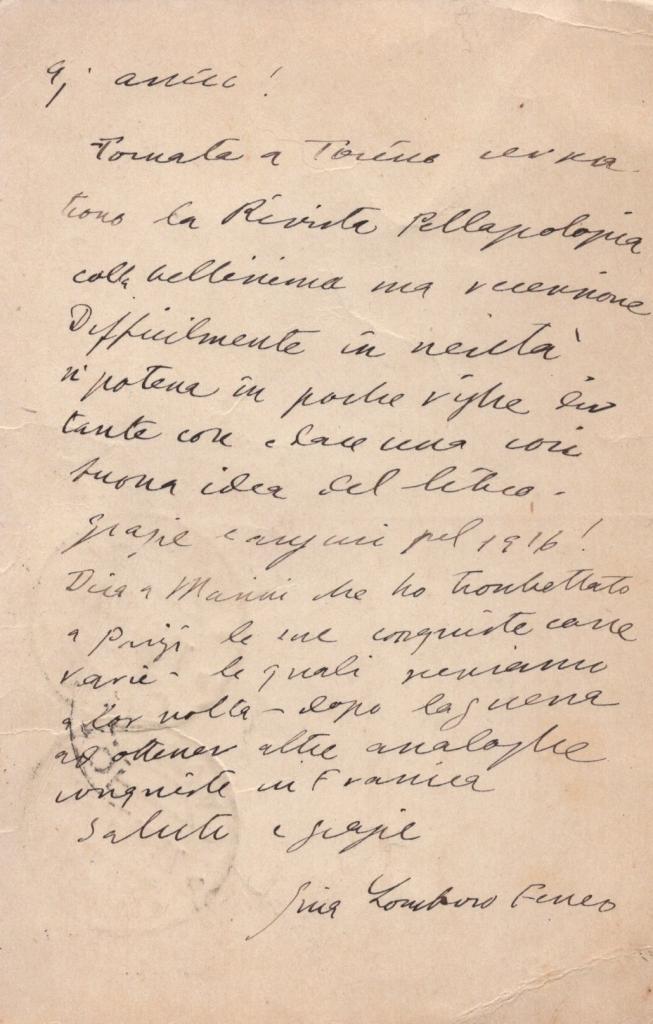 Eg. amico!
Tornata a Torino
trovo la Rivista Pellagrologica
colla bellissima sua recensione
Difficilmente in verità
si poteva in poche righe dir
tante cose e dare una così
buona idea del libro.
Grazie e auguri pel 1916!
Dica a Marini che ho trombettato
a Parigi le sue conquiste
varie - le quali serviranno
a lor volta - dopo la guerra
ad ottener altre analoghe
conquiste in Francia
Saluti e grazie
Gina Lombroso Ferrero